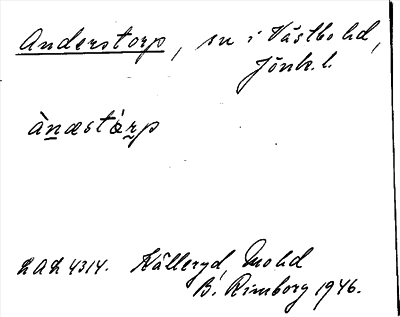 Anderstorp, sn i Västbo hd,
Jönk. l.
ànæstárp
LAL 4314. Källeryd, Mo hd
B. Rimborg 1946.